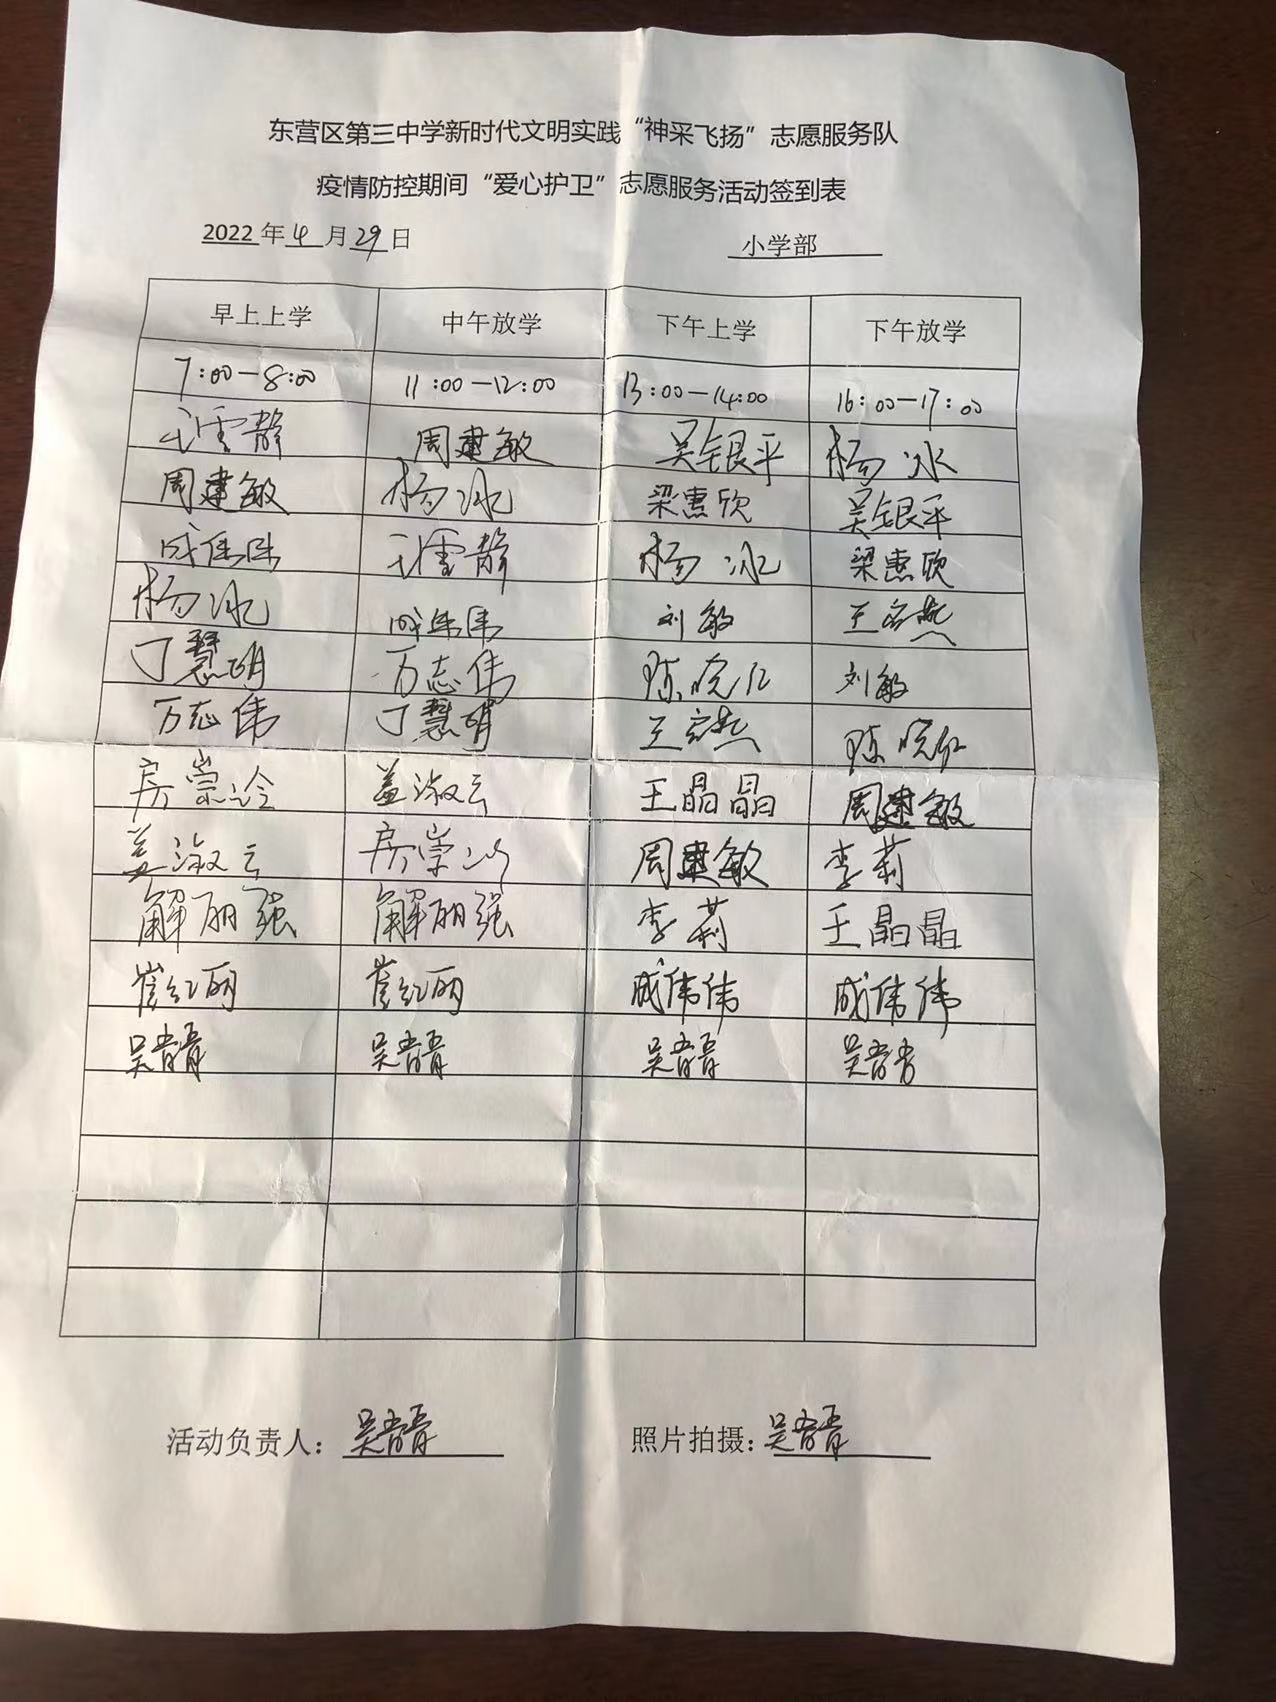 东营区第三中学新时代文明实践“神采飞扬”志愿服务队
疫情防控期间“爱心护卫”志愿服务活动签到表
2022年4月29日 小学部
早上上学 中午放学 下午上学 下午放学
7:00—8:00 11:00—12:00 13:00—14:00 16:00—17:00
雪静 周建敏 吴银平 杨冰
周建敏 杨冰 梁惠欣 吴银平
成伟伟 雪静 杨冰 梁惠欣
杨冰 成伟伟 刘敏 王
丁慧明 万志伟 陈晓红 刘敏
万志伟 丁慧明 王 陈晓红
房崇 盖淑云 王晶晶 周建敏
盖淑云 房崇 周建敏 李莉
解丽强 解丽强 李莉 王晶晶
崔红丽 崔红丽 成伟伟 成伟伟
吴 吴 吴 吴
活动负责人：吴 照片拍摄：吴